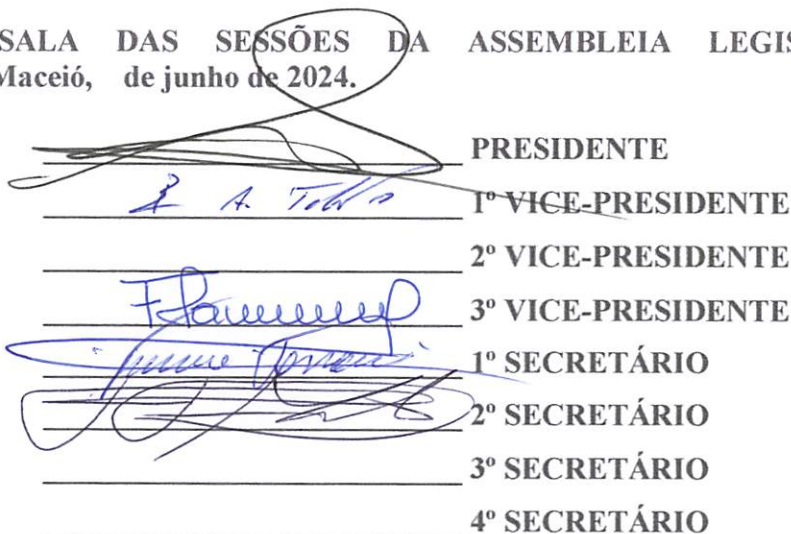 SALA DAS SESSÕES DA ASSEMBLEIA LEGIS
Maceió, de junho de 2024.
PRESIDENTE
1º VICE-PRESIDENTE
2º VICE-PRESIDENTE
3º VICE-PRESIDENTE
1º SECRETÁRIO
2º SECRETÁRIO
3º SECRETÁRIO
4º SECRETÁRIO